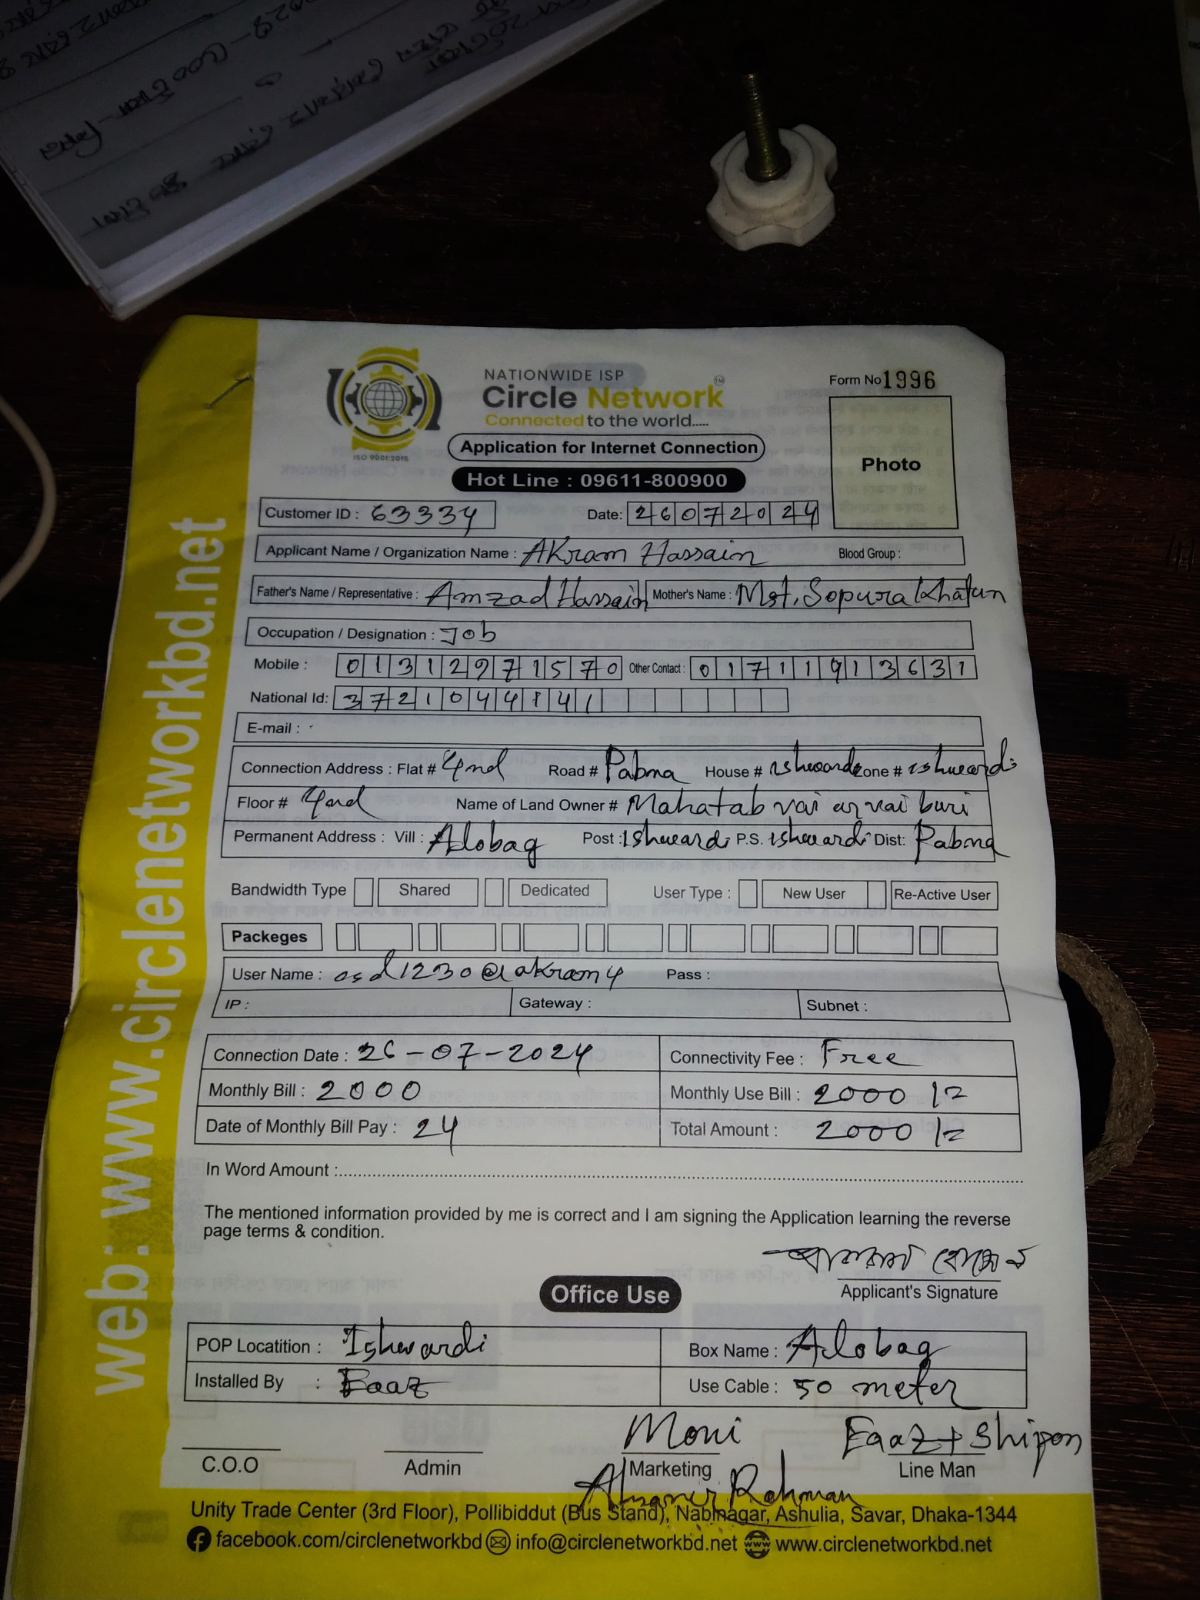 NATIONWIDE ISP
Circle Network
Connected to the world.....
ISO 9001:2015
Form No 1996
Application for Internet Connection
Photo
Hot Line : 09611-800900
Customer ID : 63334 Date: 26072024
Applicant Name / Organization Name : Akram Hassain Blood Group :
Father's Name / Representative : Amzad Hassain Mother's Name : Mst, Sopura Khatun
Occupation / Designation : Job
Mobile : 01312971570 Other Contact : 01711913631
National Id: 3721044141
E-mail :
Connection Address : Flat # 4nd Road # Pabna House # ishwardi Zone # ishwardi
Floor # 4nd Name of Land Owner # Mahatab vai buri
Permanent Address : Vill : Alobag Post : Ishwardi P.S. ishwardi Dist: Pabna
Bandwidth Type Shared Dedicated User Type : New User Re-Active User
Packeges
User Name : osd1230@akram4 Pass :
IP : Gateway : Subnet :
Connection Date : 26-07-2024 Connectivity Fee : Free
Monthly Bill : 2000 Monthly Use Bill : 2000/=
Date of Monthly Bill Pay : 24 Total Amount : 2000/=
In Word Amount :
The mentioned information provided by me is correct and I am signing the Application learning the reverse
page terms & condition.
Applicant's Signature
Office Use
POP Locatition : Ishwardi Box Name : Alobag
Installed By : Faaz Use Cable : 50 meter
Moni Faaz + Shipon
C.O.O Admin Marketing Line Man
Rahman
Unity Trade Center (3rd Floor), Pollibiddut (Bus Stand), Nabinagar, Ashulia, Savar, Dhaka-1344
facebook.com/circlenetworkbd info@circlenetworkbd.net www.circlenetworkbd.net
web: www.circlenetworkbd.net